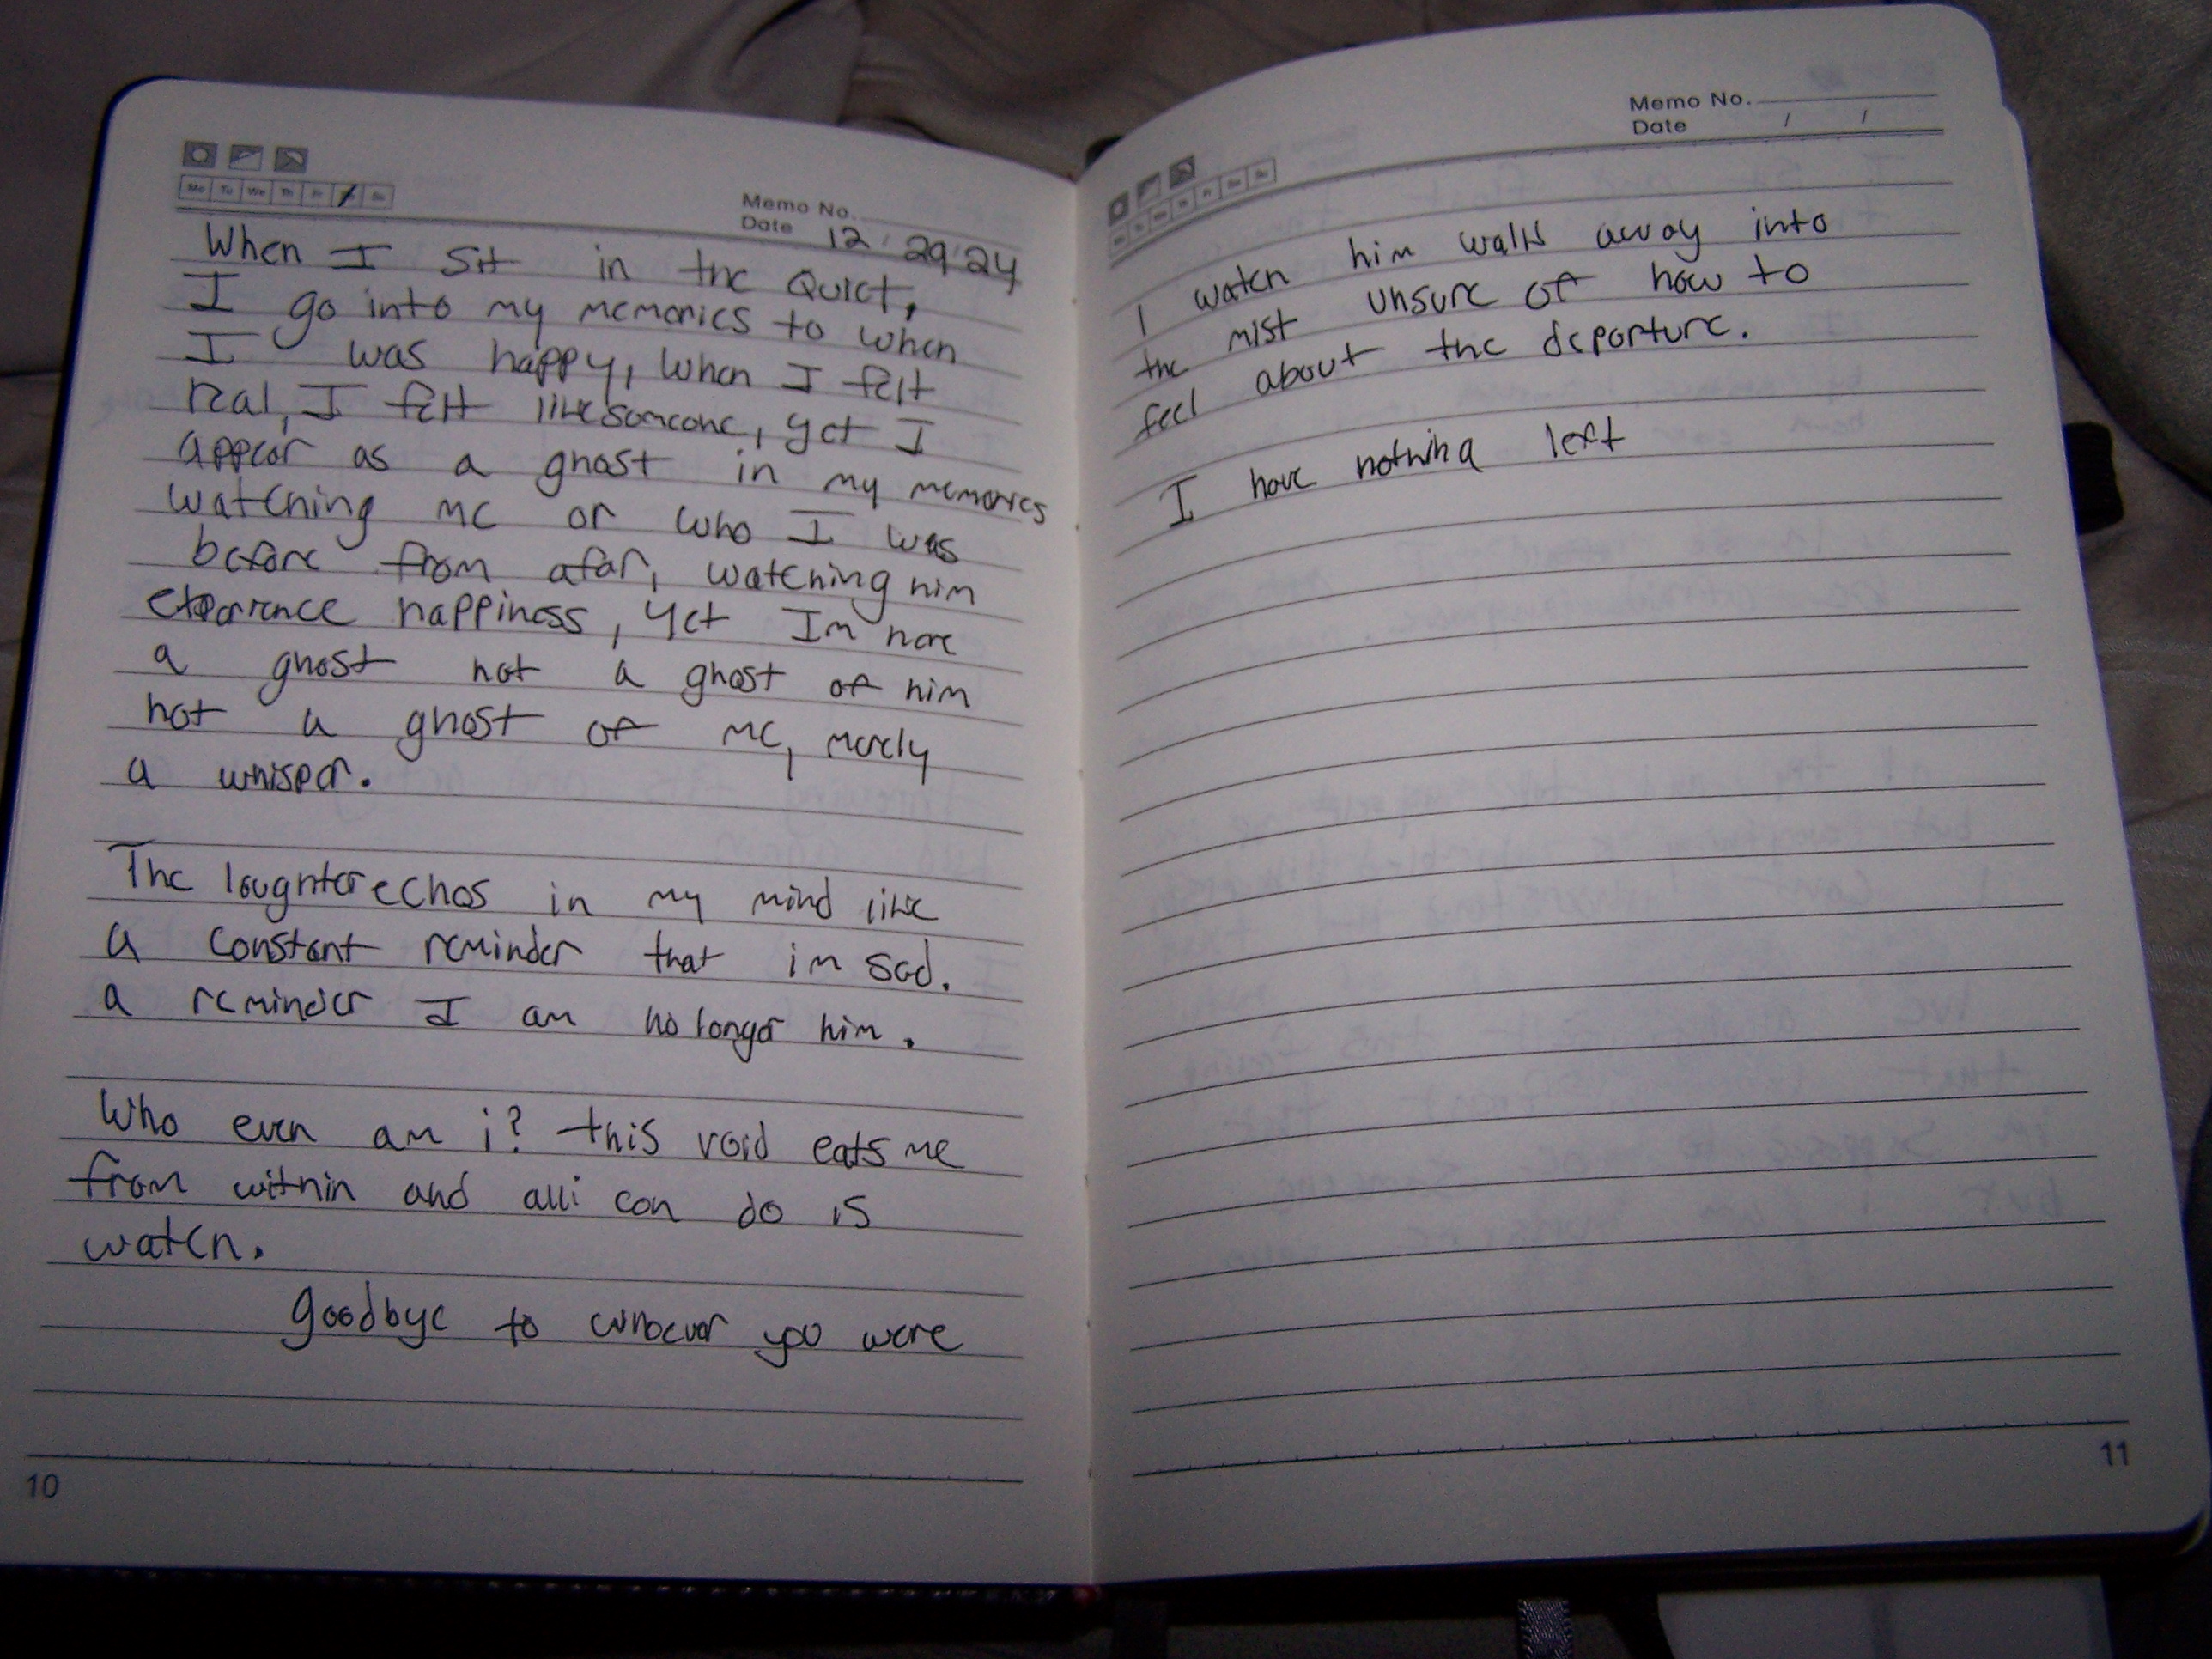 Mo Tu We Th Fr Su
Memo No.
Date 12 / 29 / 24
When I sit in the Quiet,
I go into my memories to when
I was happy, when I felt
real, I felt like someone, yet I
appear as a ghost in my memories
watching me or who I was
before from afar, watching him
experience happiness, yet Im here
a ghost not a ghost of him
not a ghost of me, merely
a whisper.
The laughter echos in my mind like
a constant reminder that im sad.
a reminder I am no longer him.
Who even am i? this void eats me
from within and all i can do is
watch.
goodbye to whoever you were
10
Memo No.
Date / /
I watch him walk away into
the mist unsure of how to
feel about the departure.
I have nothing left
11